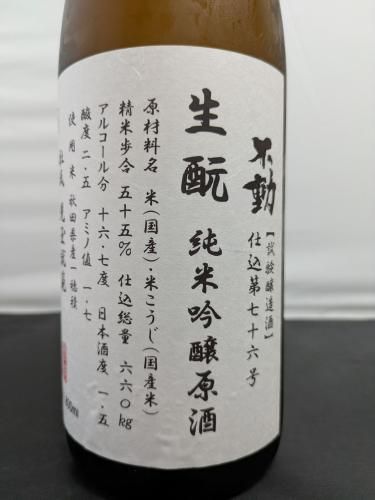 不動
【試験醸造酒】
仕込第七十六号
生酛 純米吟醸原酒
原材料名 米(国産)・米こうじ(国産米)
精米歩合 五十五% 仕込総量 六六〇kg
アルコール分 十六・七度 日本酒度 一・五
酸度 二・五 アミノ値 一・七
使用米 秋田県産一穂積